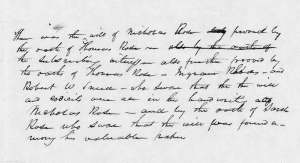 This was the will of Nicholas Rose proved by
the oath of Thomas Rose — also by the oath of
the Subscribing witness — also further proved by
the oaths of Thomas Rose — Rhodes — and
Robert W. — who swear that the the will
and are in the handwriting of
Nicholas Rose — and by the oath of David
Rose who swears that the will was found a-
mong his valuable papers